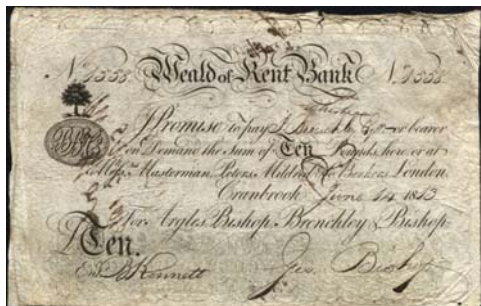 No. Weald of Kent Bank No.
I Promise to pay or bearer
on Demand the Sum of Ten Pounds, here or at
Messrs. Masterman, Peters, Mildred & Co. Bankers London.
Cranbrook June 14 1813
For Argles Bishop Brenchley & Bishop
£Ten.
Entd. Kennett Jas. Bishop